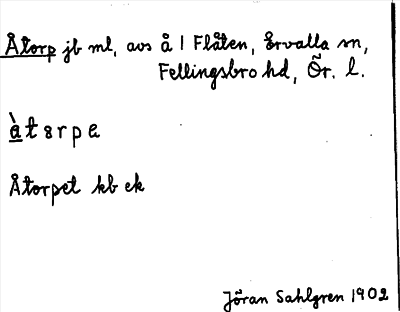 Åtorp jb ml, avs å 1 Flåten, Ervalla sn,
Fellingsbro hd, Ör. l.
å̀tɜrpɐ
Åtorpet kb ek
Jöran Sahlgren 1902